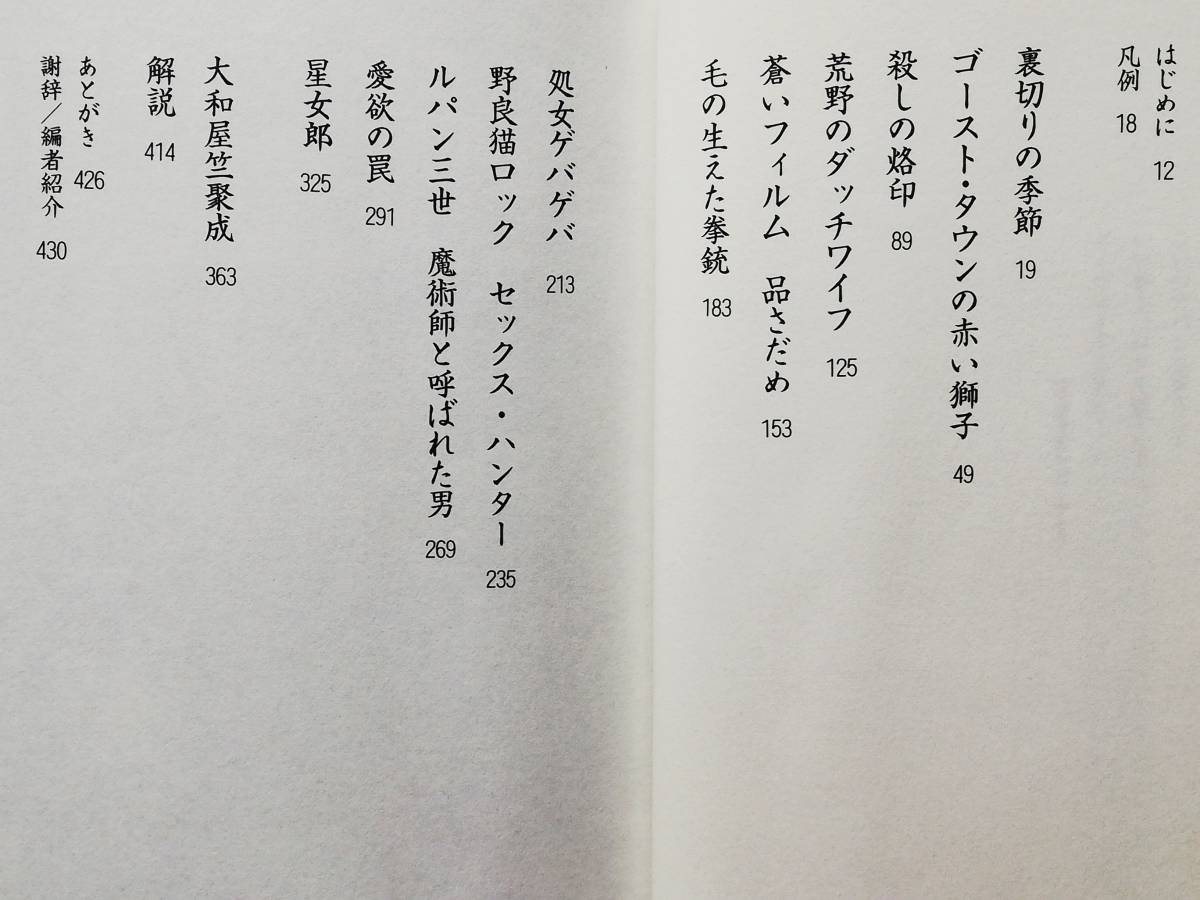 はじめに 12
凡例 18
裏切りの季節 19
ゴースト・タウンの赤い獅子 49
殺しの烙印 89
荒野のダッチワイフ 125
蒼いフィルム 品さだめ 153
毛の生えた拳銃 183
処女ゲバゲバ 213
野良猫ロック セックス・ハンター 235
ルパン三世 魔術師と呼ばれた男 269
愛欲の罠 291
星女郎 325
大和屋竺聚成 363
解説 414
あとがき 426
謝辞／編者紹介 430